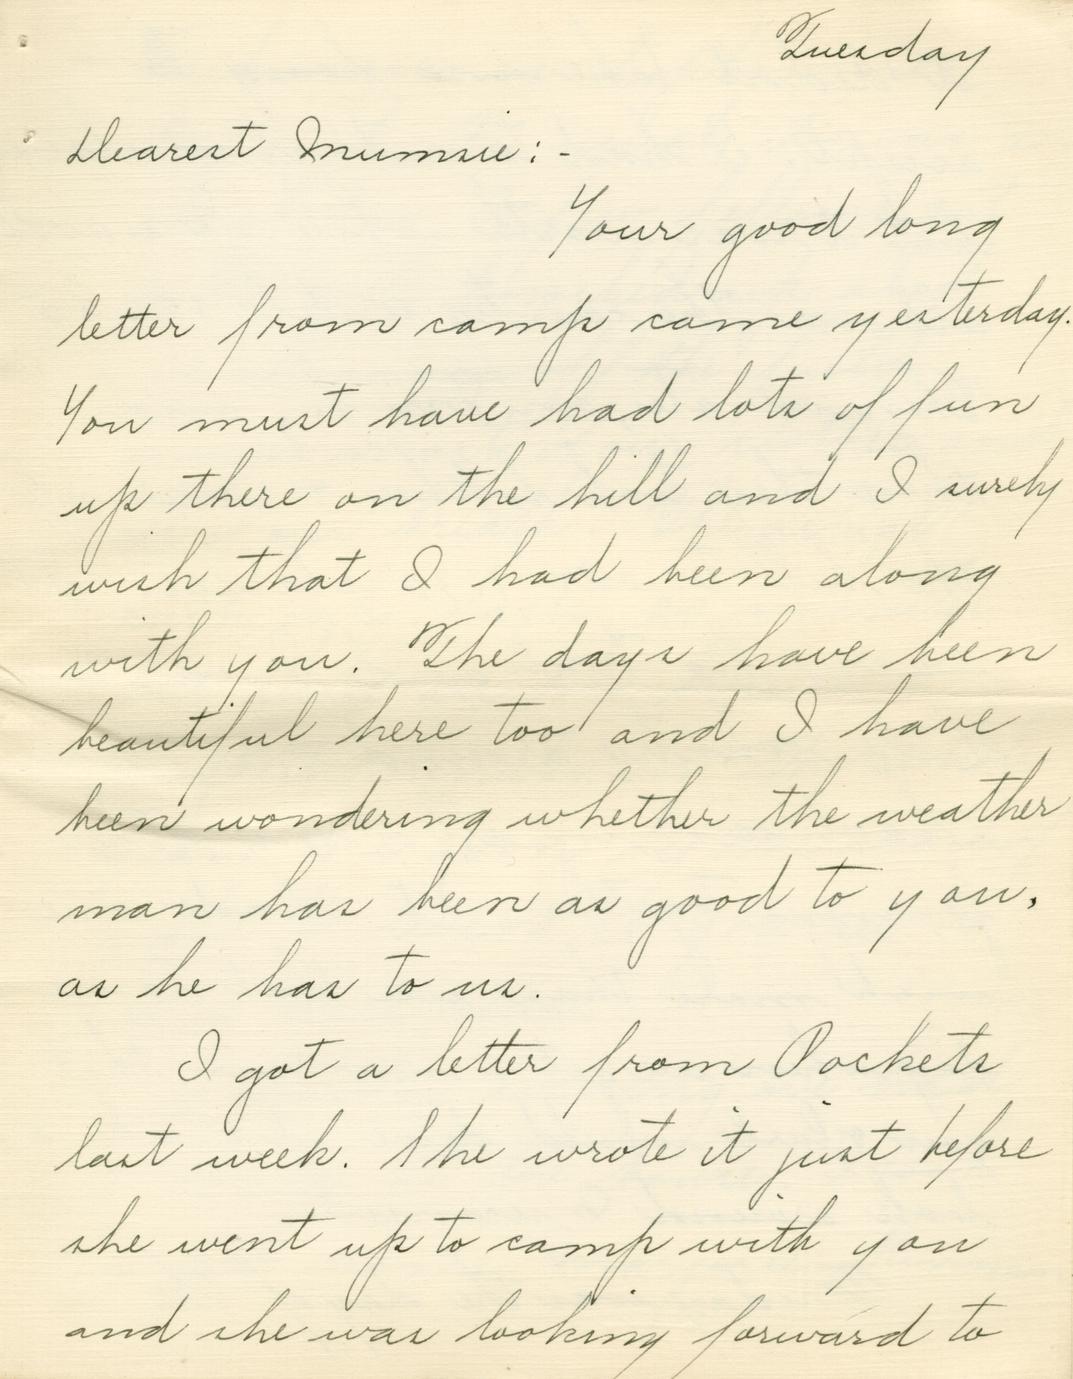 Tuesday
Dearest Mumsie:-
Your good long
letter from camp came yesterday.
You must have had lots of fun
up there on the hill and I surely
wish that I had been along
with you. The days have been
beautiful here too and I have
been wondering whether the weather
man has been as good to you,
as he has to us.
I got a letter from Pockets
last week. She wrote it just before
she went up to camp with you
and she was looking forward to